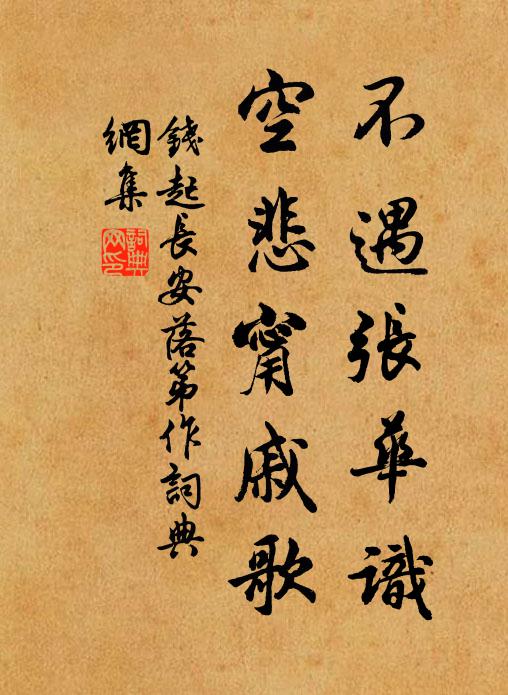 不遇張華識
空悲甯戚歌
錢起長安落第作詞典
網集
詞典
网印